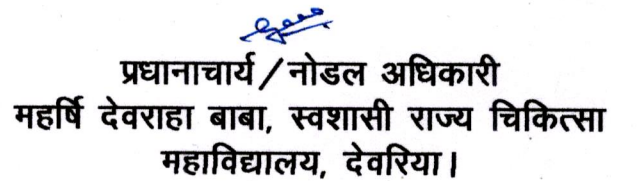 प्रधानाचार्य/नोडल अधिकारी
महर्षि देवराहा बाबा, स्वशासी राज्य चिकित्सा
महाविद्यालय, देवरिया।